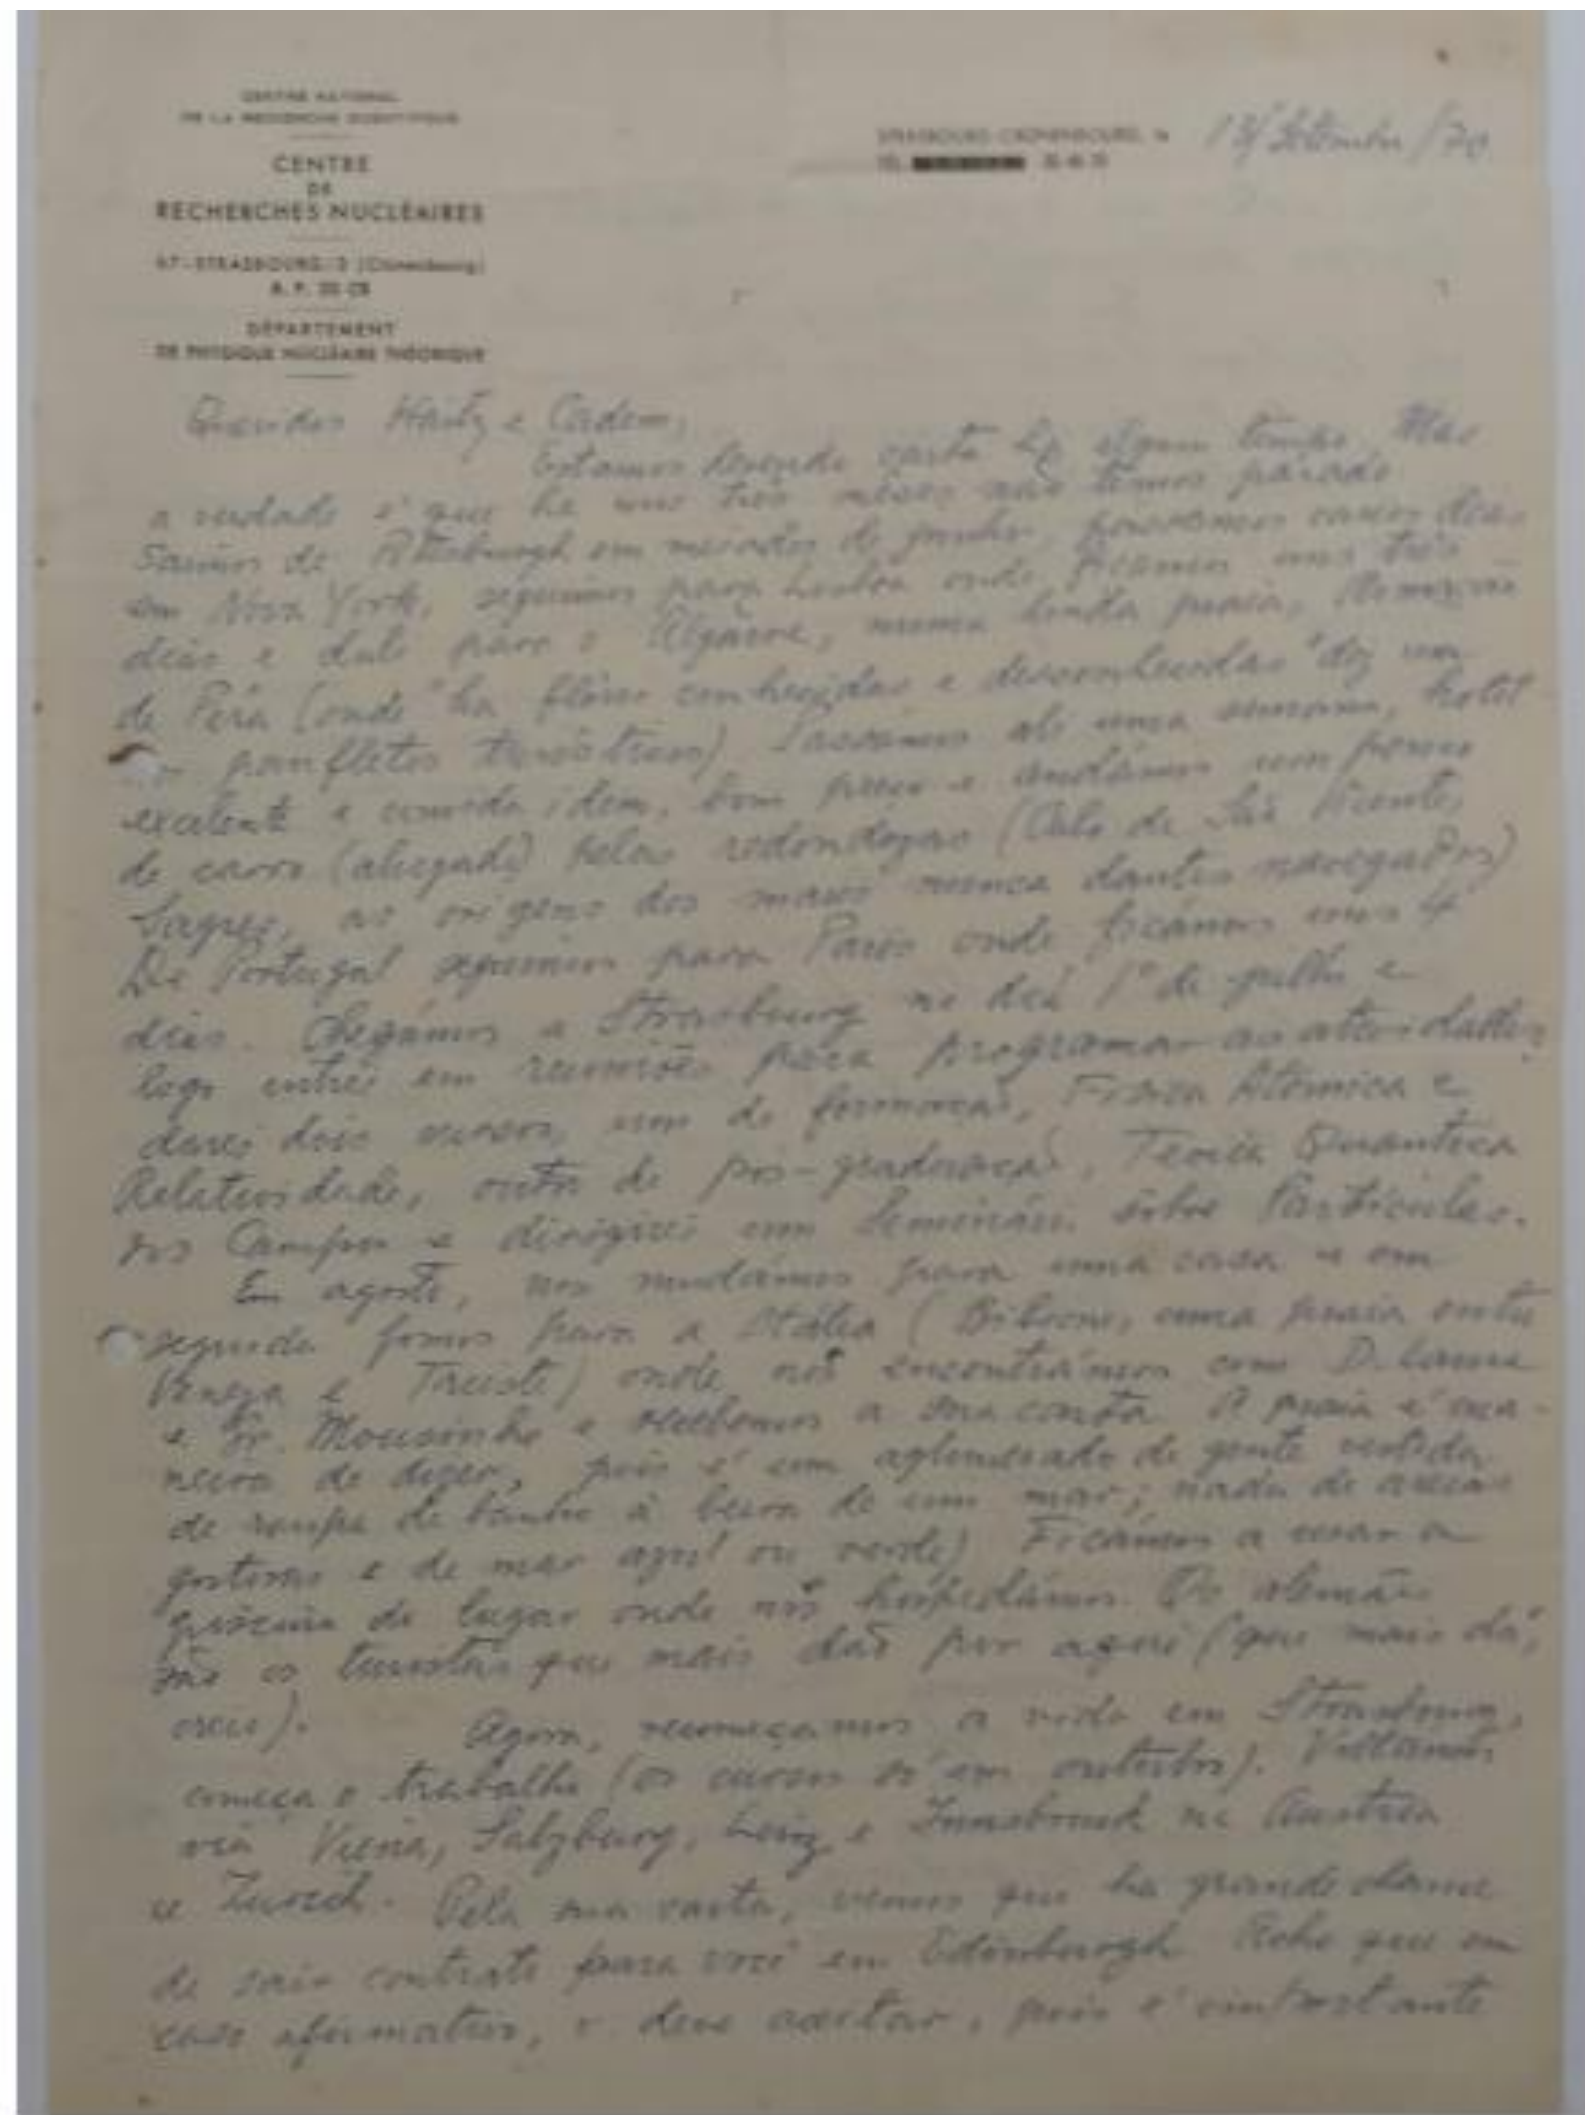 CENTRE NATIONAL
DE LA RECHERCHE SCIENTIFIQUE
CENTRE
DE
RECHERCHES NUCLÉAIRES
67-STRASBOURG/3 (Cronenbourg)
B. P. 20 CR
DÉPARTEMENT
DE PHYSIQUE NUCLÉAIRE THÉORIQUE
STRASBOURG-CRONENBOURG, le
Setembro/70
Queridos e
Estamos devendo carta há algum tempo. Mas
a verdade é que há uns três meses não temos parado
Saímos de Pittsburgh em meados de junho, passamos vários dias
em Nova York, seguimos para Lisboa onde ficamos uns três
dias e dali para o Algarve, numa linda praia, Armação
de Pera (onde "há flores conhecidas e desconhecidas" diz um
panfletos turísticos). Passamos ali uma semana, hotel
excelente e comida idem, bom preço e andámos um pouco
de carro (alugado) pelas redondezas (Cabo de São Vicente,
Sagres, as origens dos mares nunca dantes navegados)
De Portugal seguimos para Paris onde ficámos uns 4
dias. Chegámos a Strasbourg no dia 1º de julho e
logo entrei em reuniões para programar as atividades,
darei dois cursos, um de formação, Física Atômica e
Relatividade, outro de pós-graduação, Teoria Quântica
dos Campos e dirigirei um Seminário sôbre Partículas.
Em agosto, nos mudámos para uma casa e em
seguida fomos para a Itália (Bibione, uma praia entre
Veneza e Trieste) onde nos encontrámos com D. Laura
e Dr. Mousinho e recebemos a sua carta. A praia é ma-
neira de dizer, pois é um aglomerado de gente vestida
de roupa de banho à beira de um mar; nada de areias
gostosas e de mar azul ou verde). Ficámos a usar a
piscina do lugar onde nos hospedámos. Os alemães
são os turistas que mais dão por aqui (que mais dá,
creio). Agora, recomeçamos a vida em Strasbourg,
começa o trabalho (os cursos só em outubro). Voltamos
via Viena, Salzburg, Linz e Innsbruck na Austria
e Zurich. Pela sua carta, vemos que há grande chance
de sair contrato para você em Edinburgh. Acho que em
caso afirmativo, v. deve aceitar, pois é importante